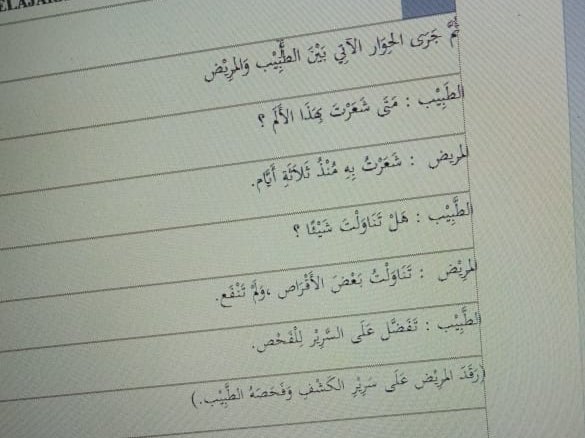 ثُمَّ جَرَى الحِوَار الآتِي بَيْنَ الطَّبِيْب وَالمَرِيْض
الطَّبِيْب : مَتَى شَعَرْتَ بِهَذَا الأَلَم ؟
المَرِيض : شَعَرْتُ بِهِ مُنْذُ ثَلَاثَةِ أَيَّام.
الطَّبِيْب : هَلْ تَنَاوَلْتَ شَيْئًا ؟
المَرِيْض : تَنَاوَلْتُ بَعْضَ الأَقْرَاص ،وَلَمْ تَنْفَع.
الطَّبِيْب : تَفَضَّل عَلَى السَّرِيْر لِلْفَحْص.
(رَقَدَ المَرِيْض عَلَى سَرِيْرِ الكَشْفِ وَفَحَصَهُ الطَّبِيْب.)